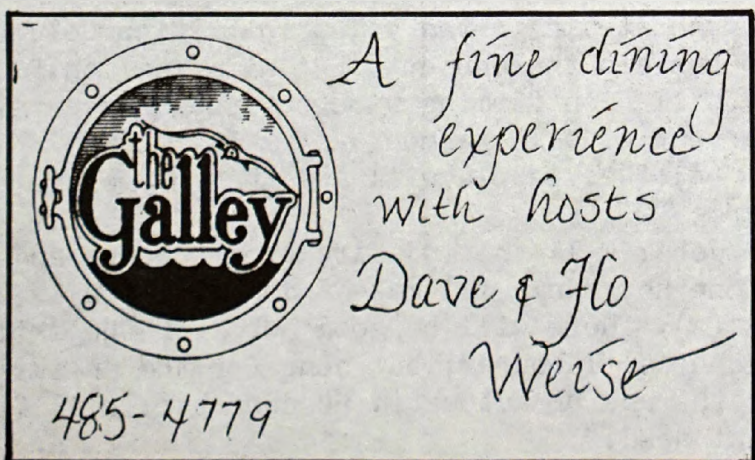 the
Galley
A fine dining
experience
with hosts
Dave & Flo
Weise
485-4779